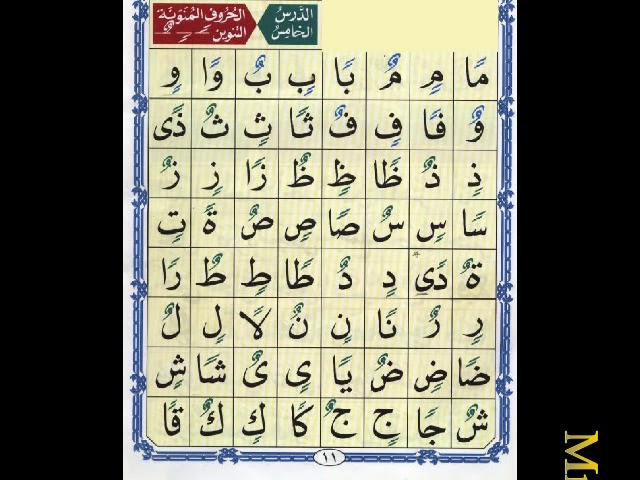 الدَّرسُ الحُرُوفُ المُنَوَّنَة
الخامِسُ التنوين
مًا مٍ مٌ بًا بٍ بٌ وًا وٍ
وٌ فًا فٍ فٌ ثًا ثٍ ثٌ ذًى
ذٍ ذٌ ظًا ظٍ ظٌ زًا زٍ زٌ
سًا سٍ سٌ صًا صٍ صٌ ةً تٍ
ةٌ دًى دٍ دٌ طًا طٍ طٌ رًا
رٍ رٌ نًا نٍ نٌ لًا لٍ لٌ
ضًا ضٍ ضٌ يًا ىٍ ىٌ شًا شٍ
شٌ جًا جٍ جٌ كًا كٍ كٌ قًا
١١